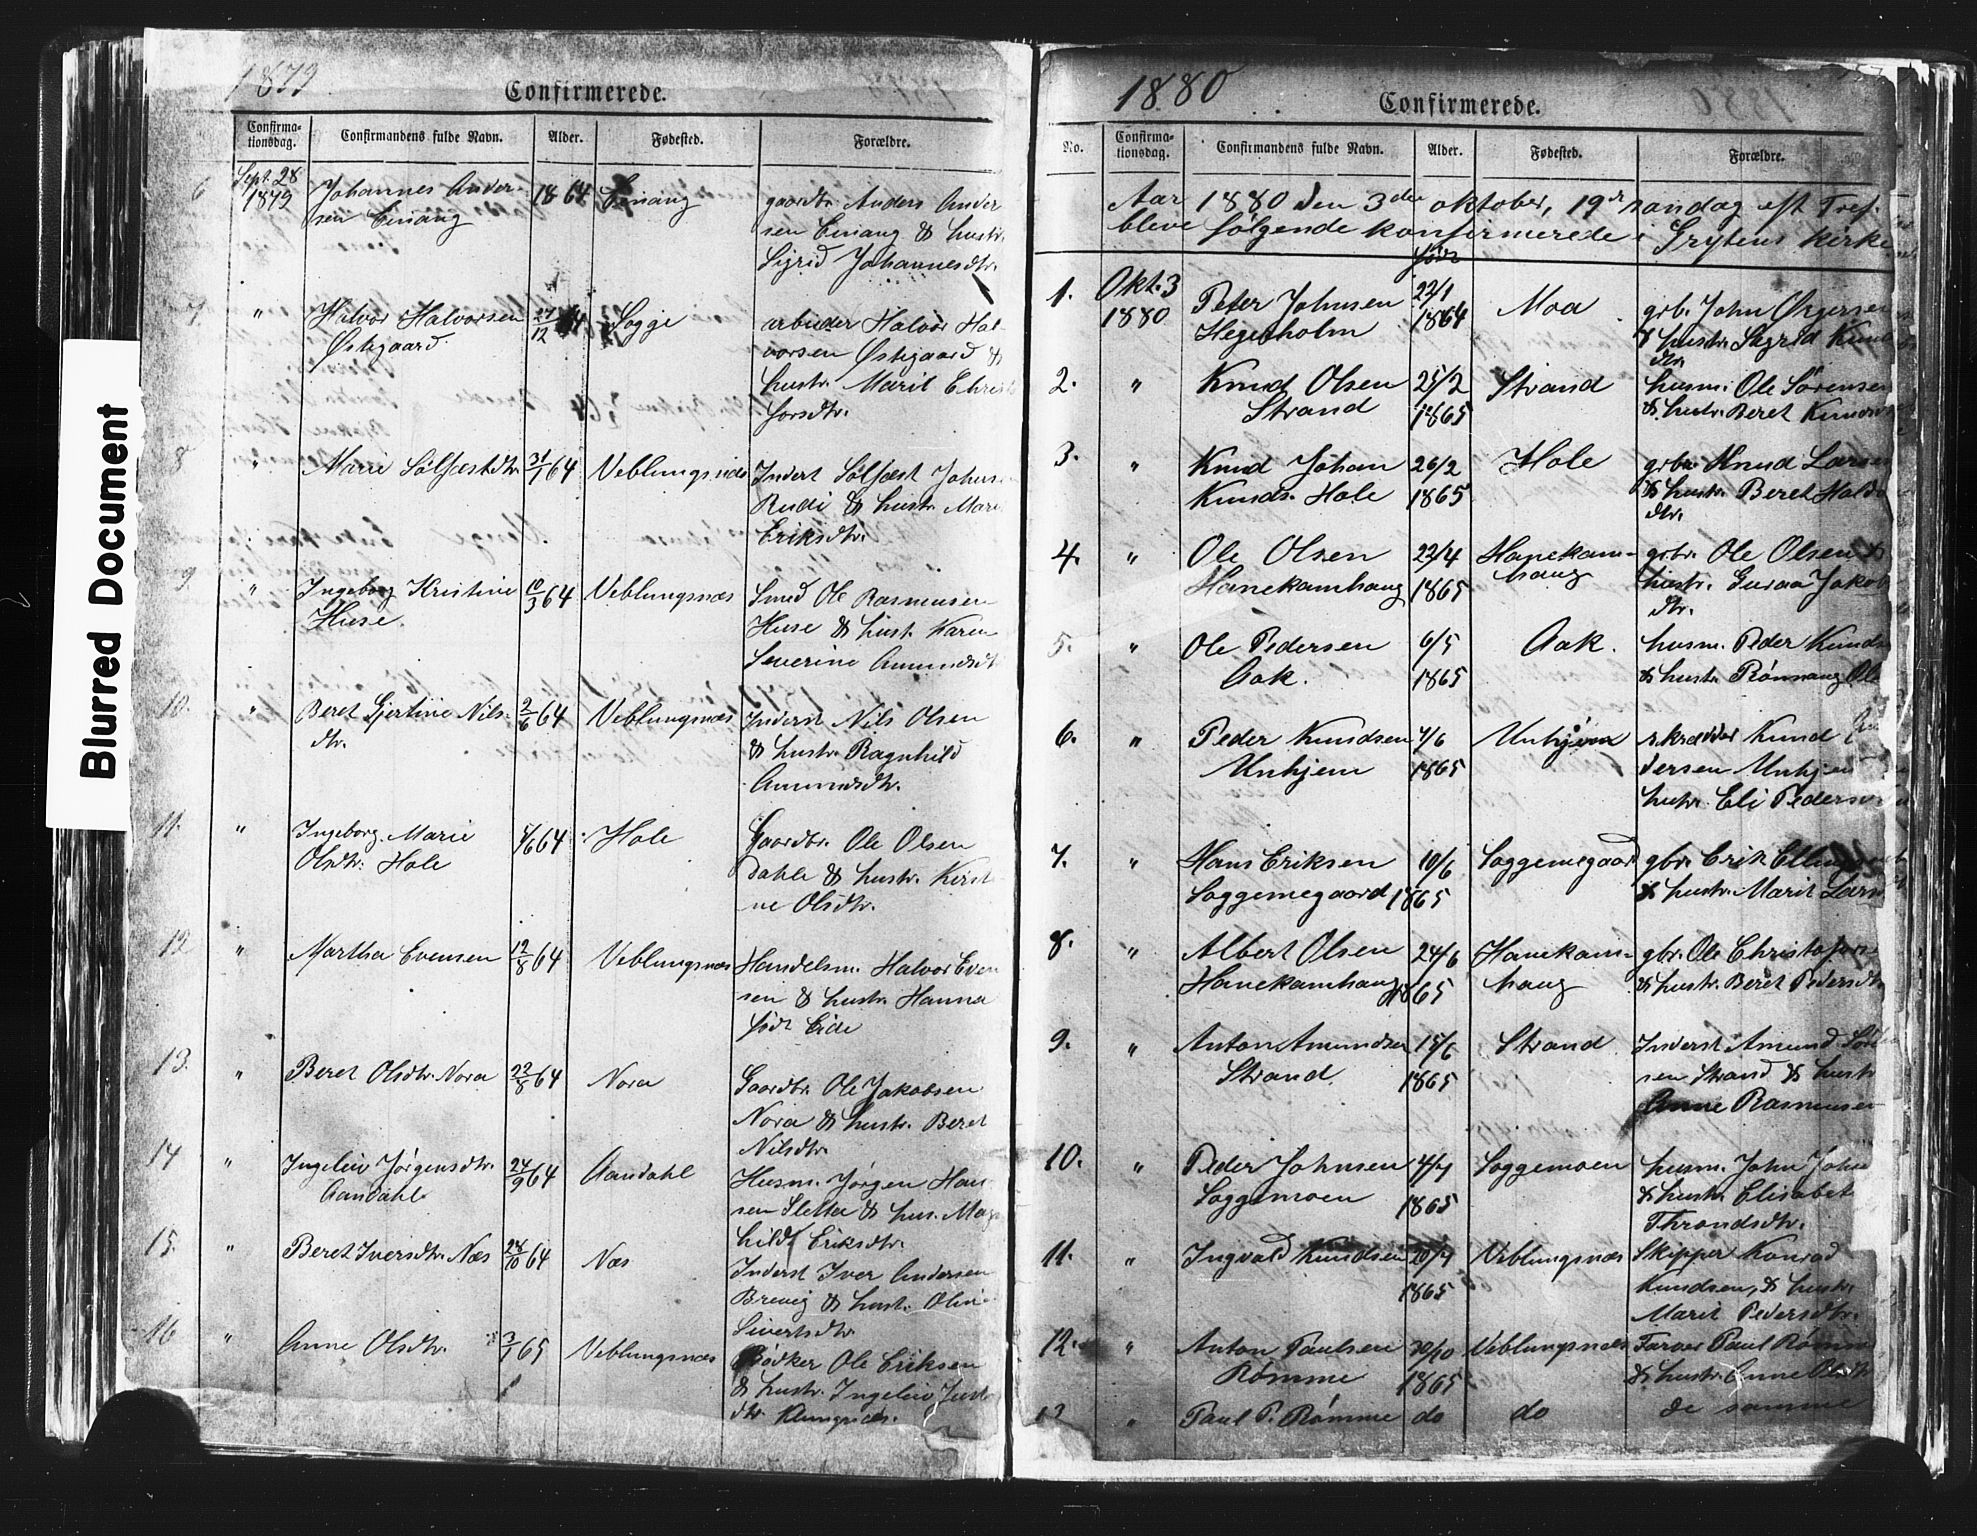 Blurred Document
1879
Confirmerede.
Confirma-
tionsdag.
Confirmandens fulde Navn.
Alder.
Fødested.
Forældre.
6
Sept. 28
1879
Johannes Ander-
sen Einang
1864
Einang
gaardbr. Anders Ander
sen Einang & hustr.
Sigrid Johannesdtr.
7
"
Halvor Halvorsen
Østigaard.
Sogge
arbeider Halvor Hal
vorsen Østigaard &
hustr. Marit Christ
forsdtr.
8
"
Marie Sølfæstdtr
31/1 64
Veblungsnes
Inderst Sølfæst Johns
Rudi & hustr. Mari
Eriksdtr.
9.
"
Ingeborg Kristine
Huse.
10/3 64
Veblungsnæs
Smed Ole Rasmussen
Huse & hust. Karen
Severine Amundsdt
10.
"
Beret Gjertine Nils-
dtr.
2/6 64
Veblungsnæs
Inderst Nils Olsen
& hustr. Ragnhild
Amundsdtr.
11.
"
Ingeborg Marie
Olsdtr. Hole
/6 64
Hole
Gaardbr. Ole Olsen
Dahle & hustr. Kirst
ne Olsdtr.
12
"
Martha Evensen
12/8 64
Veblungsnæs
Handelsm. Halvor Even
sen & hustr. Hanna
født Eide
13.
"
Beret Olsdtr. Nora
22/8 64
Nora
Gaardbr. Ole Jakobsen
Nora & hustr. Beret
Nilsdtr.
14
"
Ingeleiv Jørgensdtr.
Aandahl
24/9 64
Aandahl
Husm. Jørgen Han
sen Sletta & hus. Mag
hildt Eriksdtr.
15.
"
Beret Iversdtr. Næs
24/10 64
Næs
Inderst Iver Andersen
Brevig & hust. Oline
Sivertsdtr.
16
"
Anne Olsdtr.
3/1 65
Veblungsnæs
Bødker Ole Eriksen
& hustr. Ingeleiv
dtr. Klungnæs.
1880
Confirmerede.
No.
Confirma-
tionsdag.
Confirmandens fulde Navn.
Alder.
Fødested.
Forældre.
Aar 1880 den 3die oktober, 19de søndag eft Tref.
bleve følgende konfirmerede i Grytens kirke
født
1.
Okt. 3
1880
Peter Johnsen
Hegerholm
22/1
1864
Moa
grb. John Asgersen
& hustr. Sigrid Knud
dtr.
2.
"
Knud Olsen
Strand
25/2
1865
Strand
husm. Ole Sørensen
& hustr. Beret Knuds
3.
"
Knud Johan
Knuds. Hole
26/2
1865
Hole
grbr. Knud Larsen
& hustr. Beret Haldo
dtr.
4.
"
Ole Olsen
Hanekamhaug
22/4
1865
Hanekam-
haug
grbr. Ole Olsen &
hustr. Guraa Jakob
dtr.
5.
"
Ole Pedersen
Aak.
6/5
1865
Aak.
husm. Peder Knuds
& hustr. Rønnaug Ols
6.
"
Peder Knudsen
Unhjem
/6
1865
Unhjem
skrædder Knud Pe
dersen Unhjem
hustr. Eli Pedersd
7.
"
Hans Eriksen
Soggemegaard
10/6
1865
Soggemegaard
gbr. Erik Ellingsen
& hustr. Marit Larsdt
8.
"
Albert Olsen
Hanekamhaug
24/6
1865
Hanekam-
haug
gbr. Ole Christofors
& hustr. Beret Pedersdtr
9.
"
Anton Amundsen
Strand.
15/6
1865
Strand
Inderst Amund Sør
sen Strand & hustr
Anne Rasmusen
10.
"
Peder Johnsen
Soggemoen
4/7
1865
Soggemoen
husm. John John
& hustr. Elisabet
Throndsdtr.
11.
"
Ingvald Knudsen
20/7
1865
Veblungsnæs
Skipper Konrad
Knudsen, & hustr.
Marit Pedersdtr.
12.
"
Anton Paulsen
Rømme
20/10
1865
Veblungsnæs
Farver Paul Rømme
& hustr. Anne Olsdtr
13
"
Paul P. Rømme
do
do
de samme